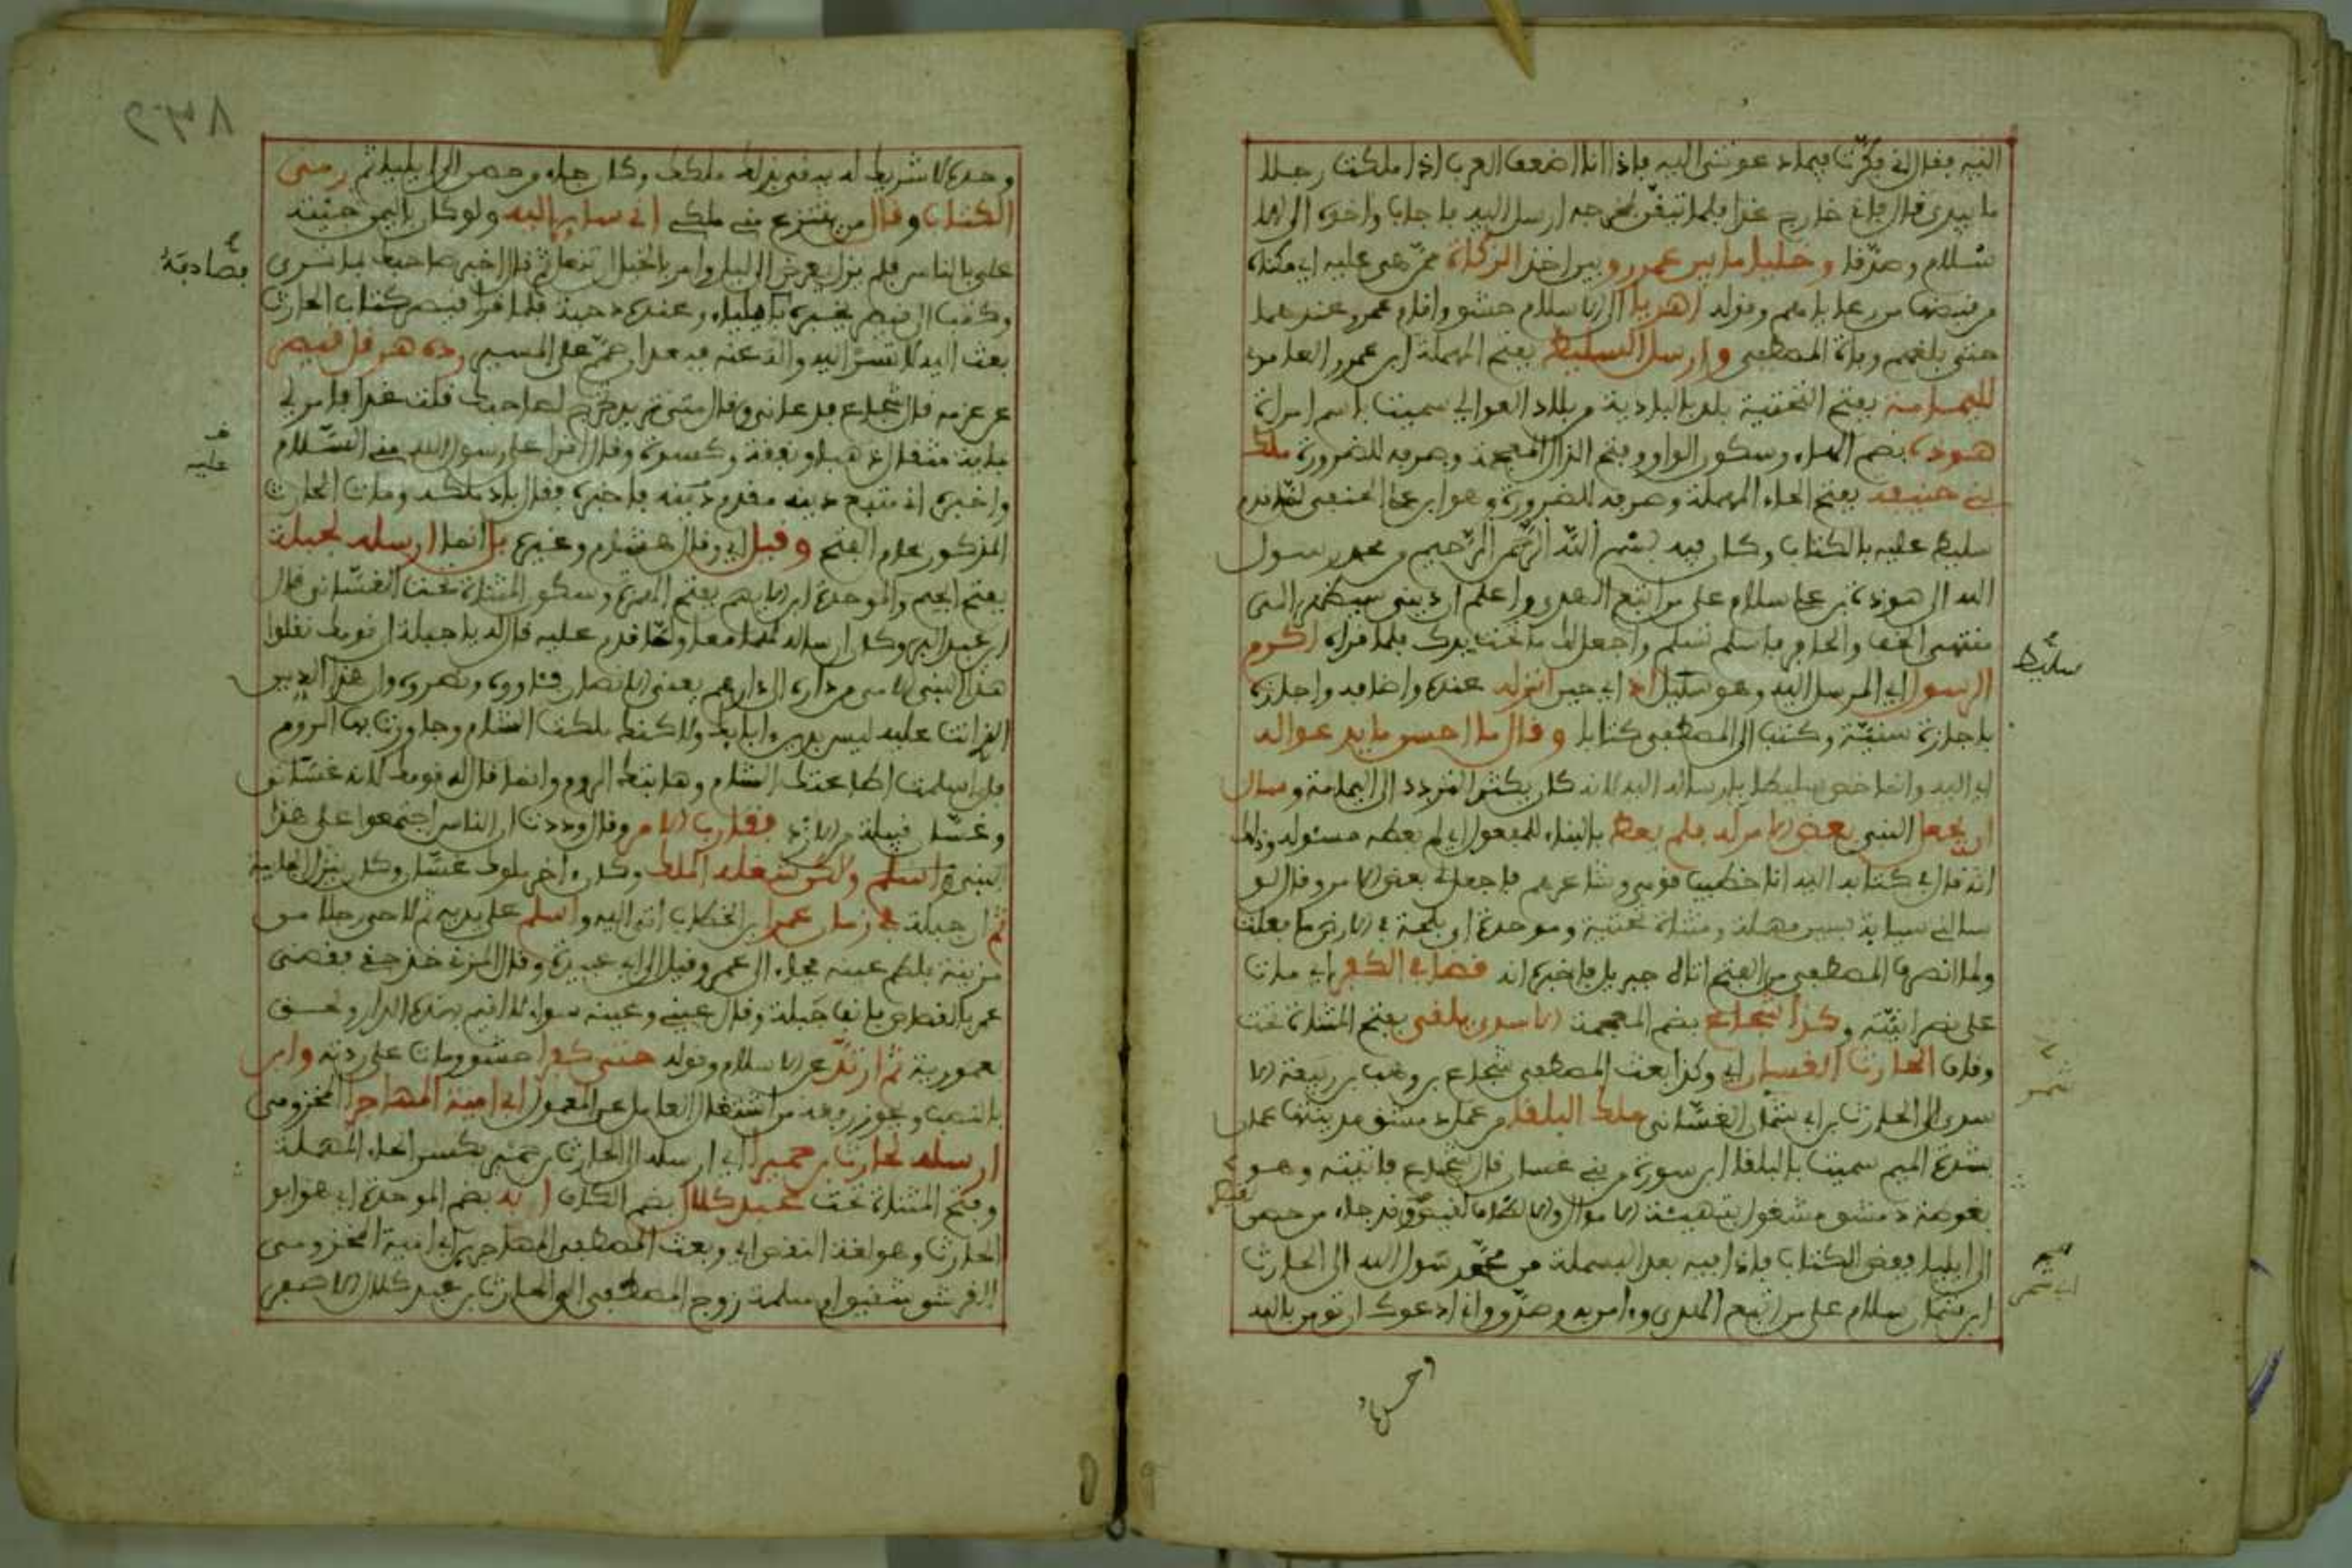 اليه فقال اني فكرت فيما دعوتني اليه فاذا انا اضعف العرب اذا ملكت رجلا
ما بيدي قال فاني خارج غدا فلما تيقن لمخرجه ارسل اليه فاجاب واخوه الى الا
سلام وصدقا وخليا ما بين عمرو وبين اخذ الزكاة ممن هي عليه اي مكناه
من قبضها من رعاياهم وقوله اهربا الاسلام حشو واقام عمرو عندهما
حتى بلغهم وفاة المصطفى وارسل السليط بفتح المهملة ابن عمرو العامري
لليمامة بفتح التحتية بلد بالبادية من بلاد العوالي سميت باسم امراة
هوذة بضم الهاء وسكون الواو وفتح الذال المعجمة وصرفه للضرورة ملك
بني حنيفة بفتح الحاء المهملة وصرفه للضرورة وهو ابن علي الحنفي فقدم
سليط عليه بالكتاب وكان فيه بسم الله الرحمن الرحيم من محمد رسول
الله الى هوذة بن علي سلام على من اتبع الهدى واعلم ان ديني سيظهر الى
منتهى الخف والحافر فاسلم تسلم واجعل لك ما تحت يدك فلما قراه اكرم
الرسول اي المرسل اليه وهو سليط اذ اي حين انزله عنده واضافه واجازه
باجازة سنية وكتب الى المصطفى كتابا وقال ما احسن ما يدعو اله
اي اليه وانما خص سليطا بارساله اليه لانه كان يكثر التردد الى اليمامة وسال
ان يجعل النبي بعض الامر له فلم يعط بالبناء للمفعول اي لم يعطه مسئوله وذلك
انه قال في كتابه اليه انا خطيب قومي وشاعرهم فاجعل لي بعض الامر وقال لو
سالني سيابة بسين مهملة ومثناة تحتية وموحدة اي بلحة في الارض ما فعلت
ولما انصرف المصطفى من الفتح اتاه جبريل فاخبره انه قضى في الكفر اي مات
على نصرانيته وكذا شجاع بضم المعجمة الاسدي يلقى بفتح المثناة تحت
وقاف الحارث الغساني اي وكذا بعث المصطفى شجاع بن وهب بن ربيعة الا
سدي الى الحارث بن ابي شمر الغساني ملك البلقا من عمل دمشق مدينتها عمان
بشدة الميم سميت بالبلقا ابن سورية من بني غسان قال شجاع فاتيته وهو
بغوطة دمشق مشغول بتهيئة الاموال والالطاف لقيصر وقد جاء من حمص
الى ايليا ففض الكتاب فاذا فيه بعد البسملة من محمد رسول الله الى الحارث
ابن شمر سلام على من اتبع الهدى وامن به وصدق واني ادعوك ان تومن بالله
وحده
سليط
شمر
ابي شمر
وحده لا شريك له يبقى لك ملكك وكان جاء من حمص الى ايليا ثم رمى
الكتاب وقال من ينتزع مني ملكي اني ساير اليه ولو كان باليمن جئته
علي بالناس فلم يزل يعرض الى الليل وامر بالخيل تنعل ثم قال اخبر صاحبك بما ترى
وكتب الى قيصر يخبره بايليا وعنده دحية فلما قرا قيصر كتاب الحارث
بعث اليه لا تسر اليه واله عنه فبعد ان هم على المسير رده هرقل قيصر
عن عزمه قال شجاع فدعاني وقال متى تريد تخرج لصاحبك قلت غدا فامر لي
بماية مثقال ذهبا ونفقة وكسوة وقال اقرا على رسول الله مني السلام
واخبره اني متبع دينه فقدم دينه فاخبره فقال باد ملكه ومات الحارث
المذكور عام الفتح وقيل اي وقال هشام وغيره بل انما ارسله لجبلة
بفتح الجيم والموحدة ابن الايهم بفتح الهمزة وسكون المثناة تحت الغساني قال
ابن عبد البر وكان ارساله لهما معا ولما قدم عليه قال له يا جبلة ان قومك نقلوا
هذا النبي الامي من داره الى دارهم يعني الانصار فئاووه ونصروه وان هذا الدين
الذي انت عليه ليس بدين ءابايك ولا كنك ملكت الشام وجاورت بها الروم
فان اسلمت اطاعتك الشام وهابتك الروم وانما قال له قومك لانه غساني
وغسان قبيلة من الازد فقارب الامر وقال وددت ان الناس اجتمعوا على هذا
النبي اسلم ولاكن شغله الملك وكان ءاخر ملوك غسان وكان ينزل الجابية
ثم ان جبلة في زمان عمر ابن الخطاب اتى اليه واسلم على يديه ثم لاحى رجلا من
مزينة فلطم عينه فجاء الى عمر وقيل الى ابي عبيدة وقال المزني خذ حقي فقضى
عمر بالقصاص فانف جبلة وقال عيني وعينه سواء لا اقيم بهذه الدار ولحق
بعمورية ثم ارتد عن الاسلام وقوله حتى كفرا حشو ومات على ردته وابن
بالنصب ويجوز رفعه من اشتغال العامل عن المعمول ابي امية المهاجر المخزومي
ارسله لحارث بن حميرا اي ارسله الى الحارث بن حمير بكسر الحاء المهملة
وفتح المثناة تحت عبد كلال بضم الكاف ابه بضم الموحدة اي هو ابو
الحارث وهو لغة النقص اي وبعث المصطفى المهاجر بن ابي امية المخزومي
القرشي شقيق ام سلمة زوج المصطفى الى الحارث بن عبد كلال الاصغر
عليه